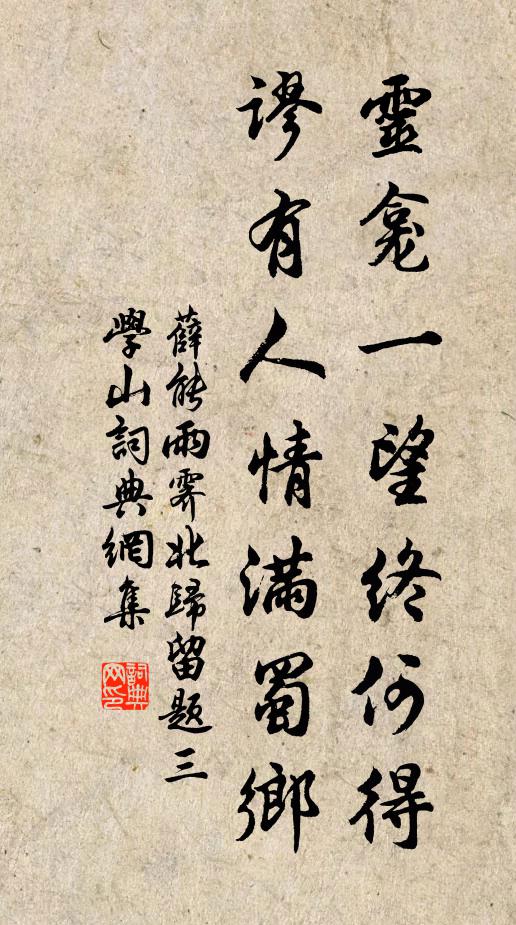 靈龕一望終何得
謬有人情滿蜀鄉
薛能雨霽北歸留題三
學山詞典網集
詞典网印